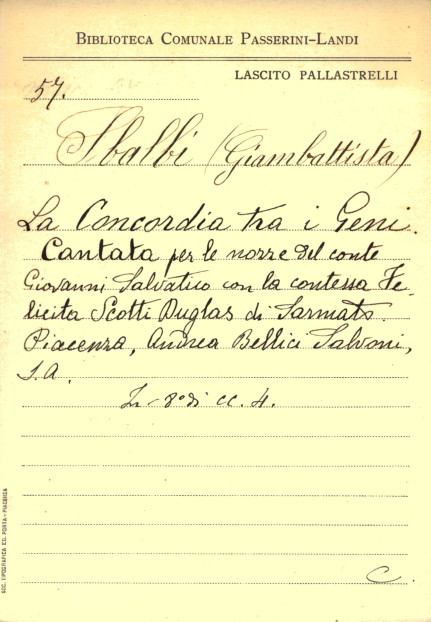 BIBLIOTECA COMUNALE PASSERINI-LANDI
LASCITO PALLASTRELLI
57.
Sbalbi (Giambattista)
La Concordia tra i Geni.
Cantata per le nozze del conte
Giovanni Salvatico con la contessa Fe-
licita Scotti Duglas di Sarmato.
Piacenza, Andrea Bellici Salvoni,
S.A.
In-8° di cc. 4.
C.
SOC. TIPOGRAFICA ED. PORTA-PIACENZA